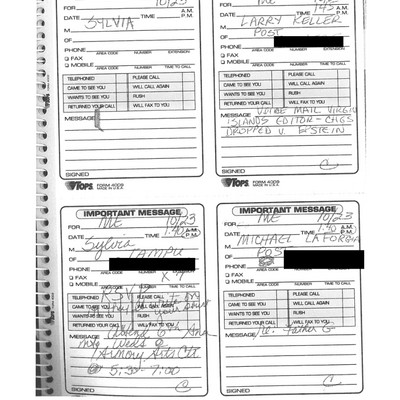 FOR
DATE 10/23 TIME A.M. P.M.
M SYLVIA
OF
PHONE AREA CODE NUMBER EXTENSION
FAX
MOBILE AREA CODE NUMBER TIME TO CALL
TELEPHONED PLEASE CALL
CAME TO SEE YOU WILL CALL AGAIN
WANTS TO SEE YOU RUSH
RETURNED YOUR CALL WILL FAX TO YOU
MESSAGE
SIGNED
TOPS FORM 4009 MADE IN U.S.A.
FOR ME
DATE TIME 145 A.M. P.M.
M LARRY KELLER
OF POST
PHONE AREA CODE NUMBER EXTENSION
FAX
MOBILE AREA CODE NUMBER TIME TO CALL
TELEPHONED PLEASE CALL
CAME TO SEE YOU WILL CALL AGAIN
WANTS TO SEE YOU RUSH
RETURNED YOUR CALL WILL FAX TO YOU
MESSAGE MAIL VIRGIN
ISLANDS EDITOR - CHGS
DROPPED V. EPSTEIN
SIGNED C
TOPS FORM 4009 MADE IN U.S.A.
IMPORTANT MESSAGE
FOR ME
DATE 10/23 TIME A.M. P.M.
M Sylvia
OF TAMPU
PHONE AREA CODE NUMBER
FAX
MOBILE AREA CODE NUMBER TIME TO CALL
TELEPHONED PLEASE CALL
CAME TO SEE YOU WILL CALL AGAIN
WANTS TO SEE YOU RUSH
RETURNED YOUR CALL WILL FAX TO YOU
MESSAGE
Weeks @
Armory Arts Ctr
@ 5:30 - 7:00
SIGNED C
IMPORTANT MESSAGE
FOR ME 10/23
DATE TIME 1:40 A.M. P.M.
M MICHAEL LAFORGIA
OF POST
PHONE AREA CODE NUMBER EXTENSION
FAX
MOBILE AREA CODE NUMBER TIME TO CALL
TELEPHONED PLEASE CALL
CAME TO SEE YOU WILL CALL AGAIN
WANTS TO SEE YOU RUSH
RETURNED YOUR CALL WILL FAX TO YOU
MESSAGE re: Father G
SIGNED C